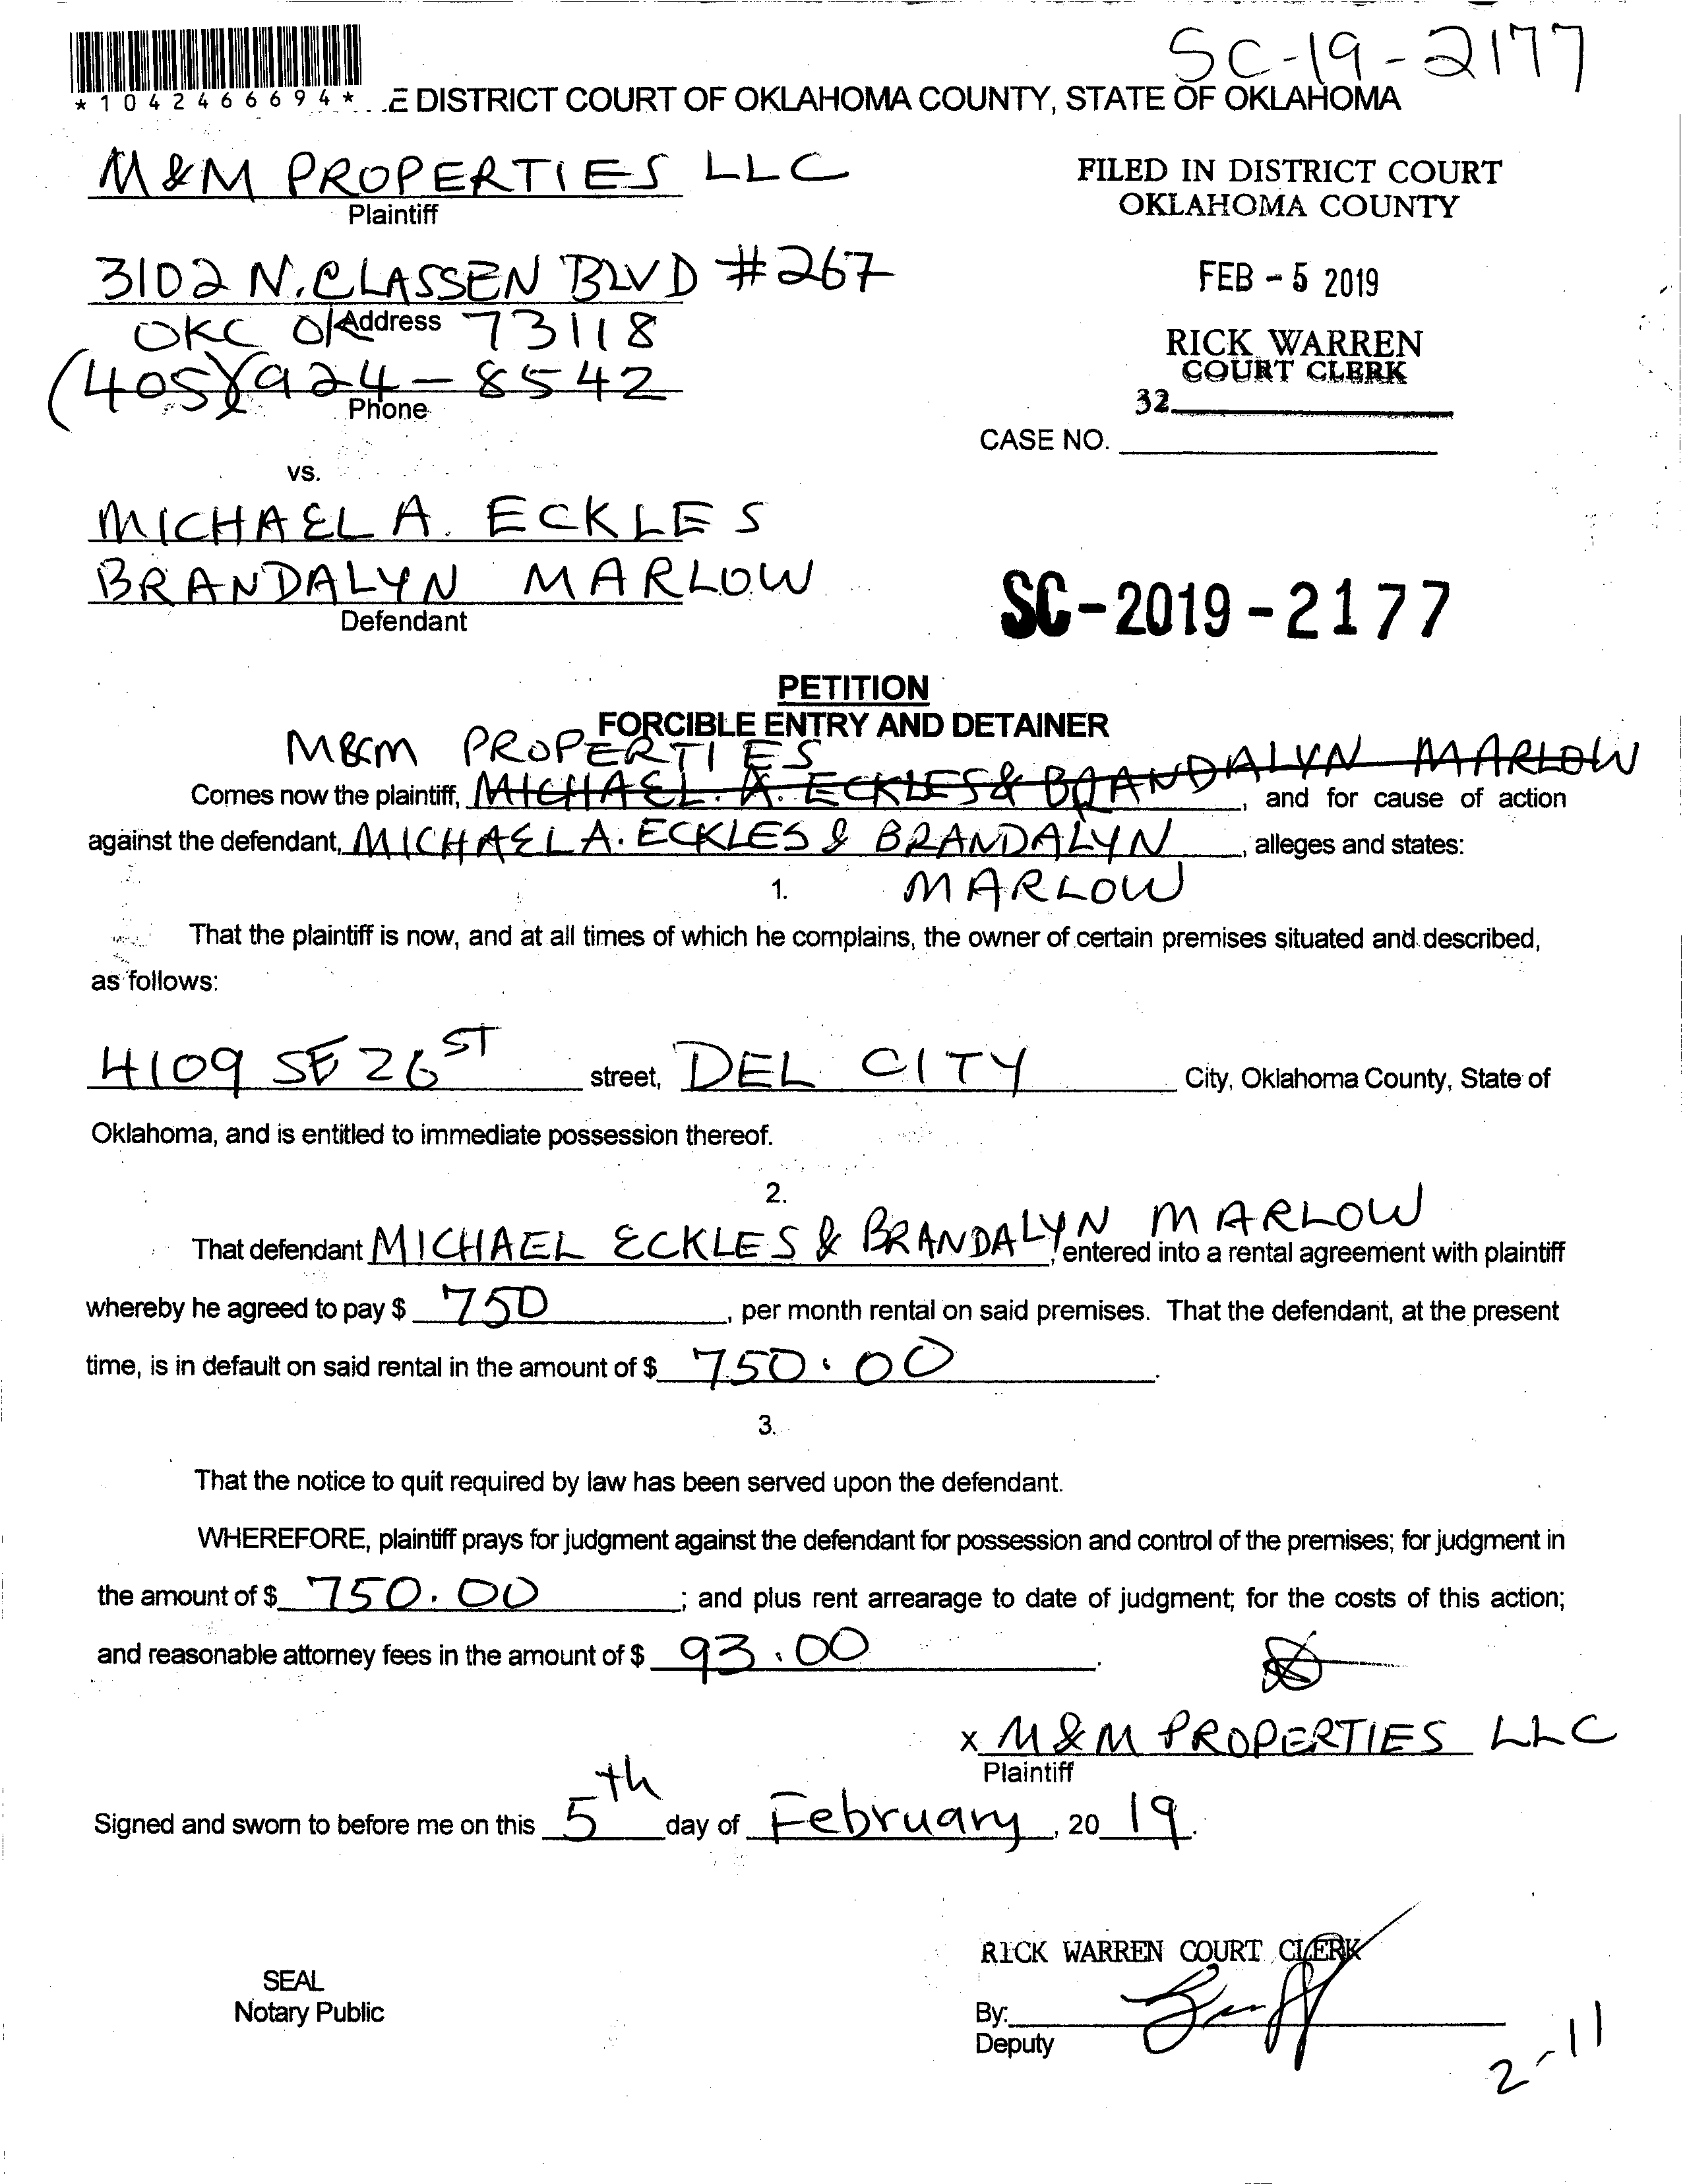 SC-19-2177
*1042466694* E DISTRICT COURT OF OKLAHOMA COUNTY, STATE OF OKLAHOMA
M&M PROPERTIES LLC
Plaintiff
FILED IN DISTRICT COURT
OKLAHOMA COUNTY
3102 N. CLASSEN BLVD #267
FEB - 5 2019
OKC OK 73118
Address
RICK WARREN
COURT CLERK
(405) 924-8542
Phone
32
CASE NO.
vs.
MICHAEL A. ECKLES
BRANDALYN MARLOW
Defendant
SC-2019-2177
PETITION
FORCIBLE ENTRY AND DETAINER
M&M PROPERTIES
Comes now the plaintiff, MICHAEL. A. ECKLES & BRANDALYN MARLOW, and for cause of action
against the defendant, MICHAEL A. ECKLES & BRANDALYN, alleges and states:
MARLOW
1.
That the plaintiff is now, and at all times of which he complains, the owner of certain premises situated and described,
as follows:
4109 SE 26 ST street, DEL CITY City, Oklahoma County, State of
Oklahoma, and is entitled to immediate possession thereof.
2.
That defendant MICHAEL ECKLES & BRANDALYN MARLOW, entered into a rental agreement with plaintiff
whereby he agreed to pay $ 750, per month rental on said premises. That the defendant, at the present
time, is in default on said rental in the amount of $ 750.00.
3.
That the notice to quit required by law has been served upon the defendant.
WHEREFORE, plaintiff prays for judgment against the defendant for possession and control of the premises; for judgment in
the amount of $ 750.00; and plus rent arrearage to date of judgment; for the costs of this action;
and reasonable attorney fees in the amount of $ 93.00.
x M&M PROPERTIES LLC
Plaintiff
Signed and sworn to before me on this 5th day of February, 2019.
RICK WARREN COURT CLERK
SEAL
Notary Public
By:
Deputy
2-11